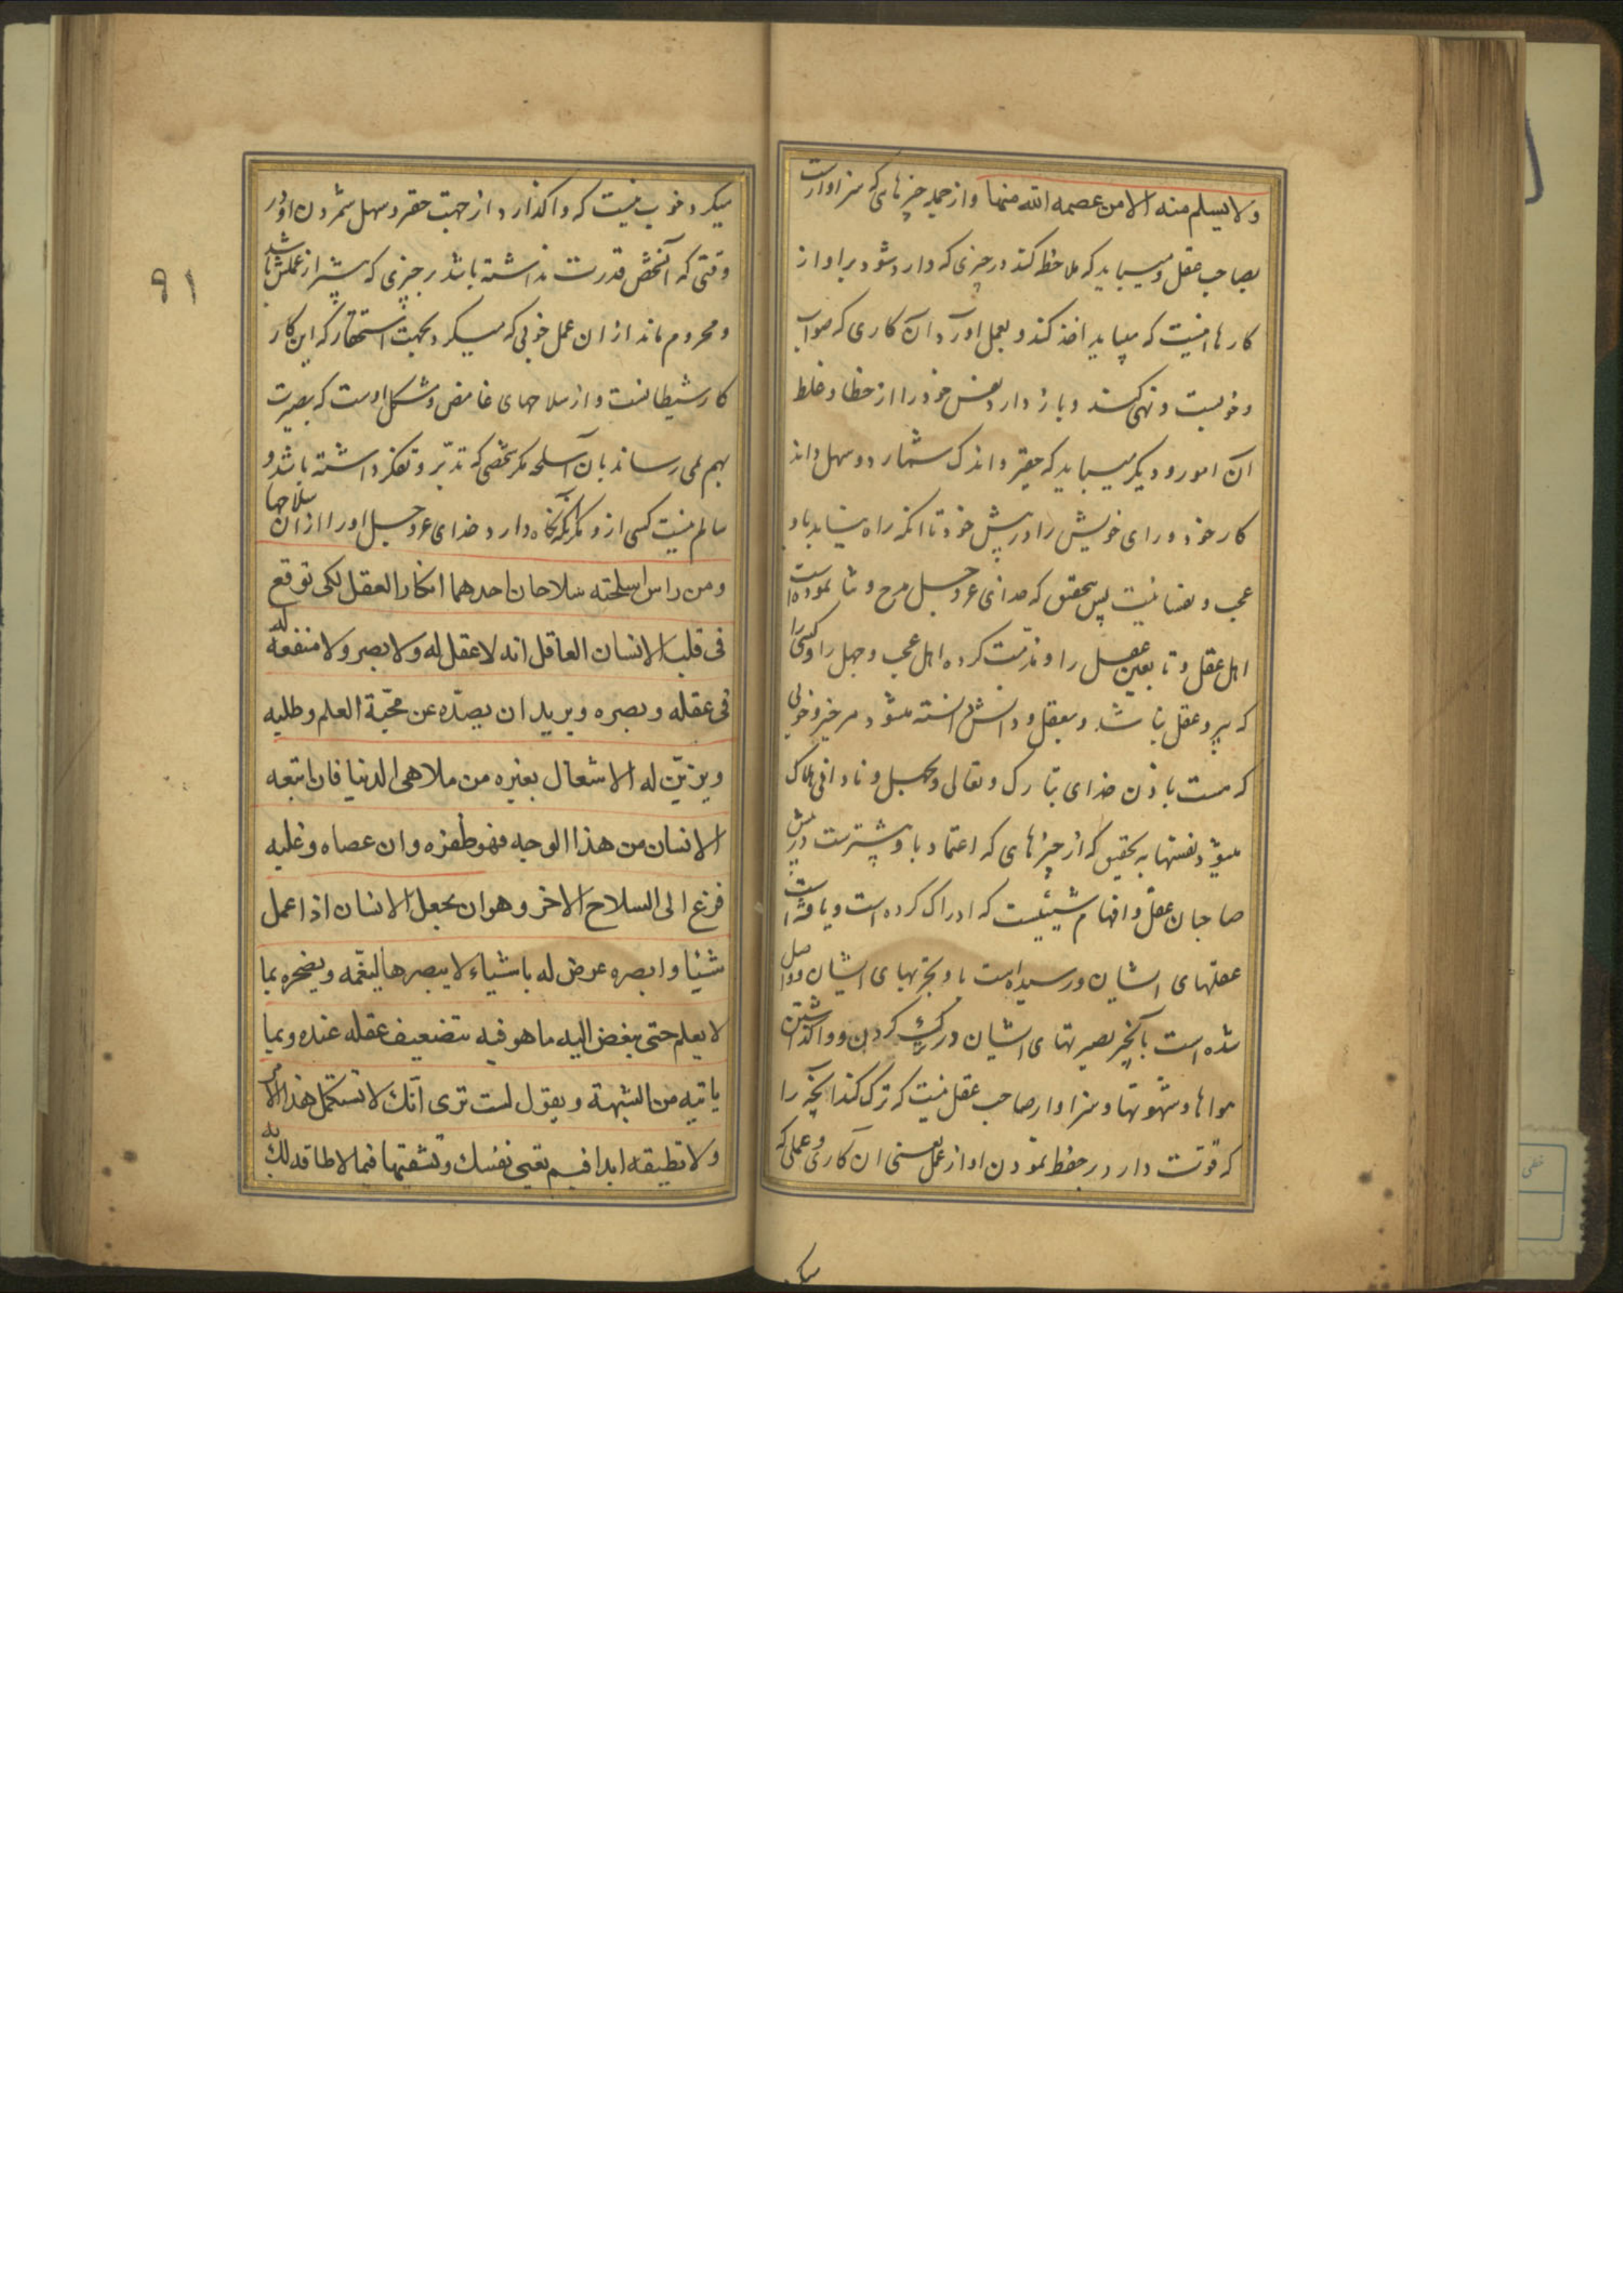 ولا یسلم منه الا من عصمه الله منها و از جمله چیزهای که سزاوارست
بصاحب عقل و میباید که ملاحظه کند در چیزی که وارد شود بر او از
کارها اینست که میباید اخذ کند و بعمل اورد آن کاری که صواب
و خوبست و نهی کند و باز دارد نفس خود را از خطا و غلط
آن امور و دیگر میباید که حقیر و اندک شمارد و سهل داند
کار خود و رای خویش را در پیش خود تا انکه راه نیابد باو
عجب و نفسانیت پس بتحقیق که خدای عز و جل مدح و ثنا نموده است
اهل عقل و تابعین عقل را و مذمت کرده اهل عجب و جهل را و کسی را
که پیرو عقل نباشد و بعقل و دانش دانسته میشود هر خیر و خوبی
که هست باذن خدای تبارک و تعالی و بجهل و نادانی هلاک
میشود نفسها بتحقیق که از چیزهای که اعتماد باو بیشترست در پیش
صاحبان عقل و افهام شیئیست که ادراک کرده است و یافته است
عقلهای ایشان و رسیده است باو تجربهای ایشان و واصل
شده است بآنچیز بصیرتهای ایشان در ترک کردن و واگذاشتن
هواها و شهوتها و سزاوار صاحب عقل نیست که ترک کند آنچه را
که قوت دارد در حفظ نمودن او از عمل یعنی ان کاری و عملی که
میکر
میکرد خوب نیست که واگذارد از جهت حقیر و سهل شمردن او در
وقتی که آنشخص قدرت نداشته باشد بر چیزی که بیشتر از عملش باشد
و محروم ماند از ان عمل خوبی که میکرد بجهت استحقار که این کار
کار شیطانست و از سلاحهای غامض و مشکل اوست که بصیرت
بهم نمی رساند بان آسلحه مکر شخصی که تدبّر و تفکر داشته باشد و
سالم نیست کسی از و مکر آنکه نگاه دارد خدای عز و جل او را از ان سلاحها
ومن راس اسلحته سلاحان احدهما انکار العقل لکی توقع
فی قلب الانسان العاقل انه لا عقل له ولا بصر ولا منفعة له
فی عقله و بصره ویرید ان یصدّه عن محبّة العلم وطلبه
ویزیّن له الاشغال بغیره من ملاهی الدنیا فان اتبعه
الانسان من هذا الوجه فهو ظفره وان عصاه وغلبه
فزع الی السلاح الاخر وهو ان یجعل الانسان اذا عمل
شیئا وابصره عرض له باشیاء لا یبصرها لیغمّه ویضجره بما
لا یعلم حتی یبغض الیه ما هو فیه بتضعیف عقله عنده وبما
یاتیه من الشبهة ویقول الست تری انّک لا تستکمل هذا الامر
ولا تطیقه ابدا فبم تعنی نفسک وتشقیها فیما لا طاقه لک به
۹۱